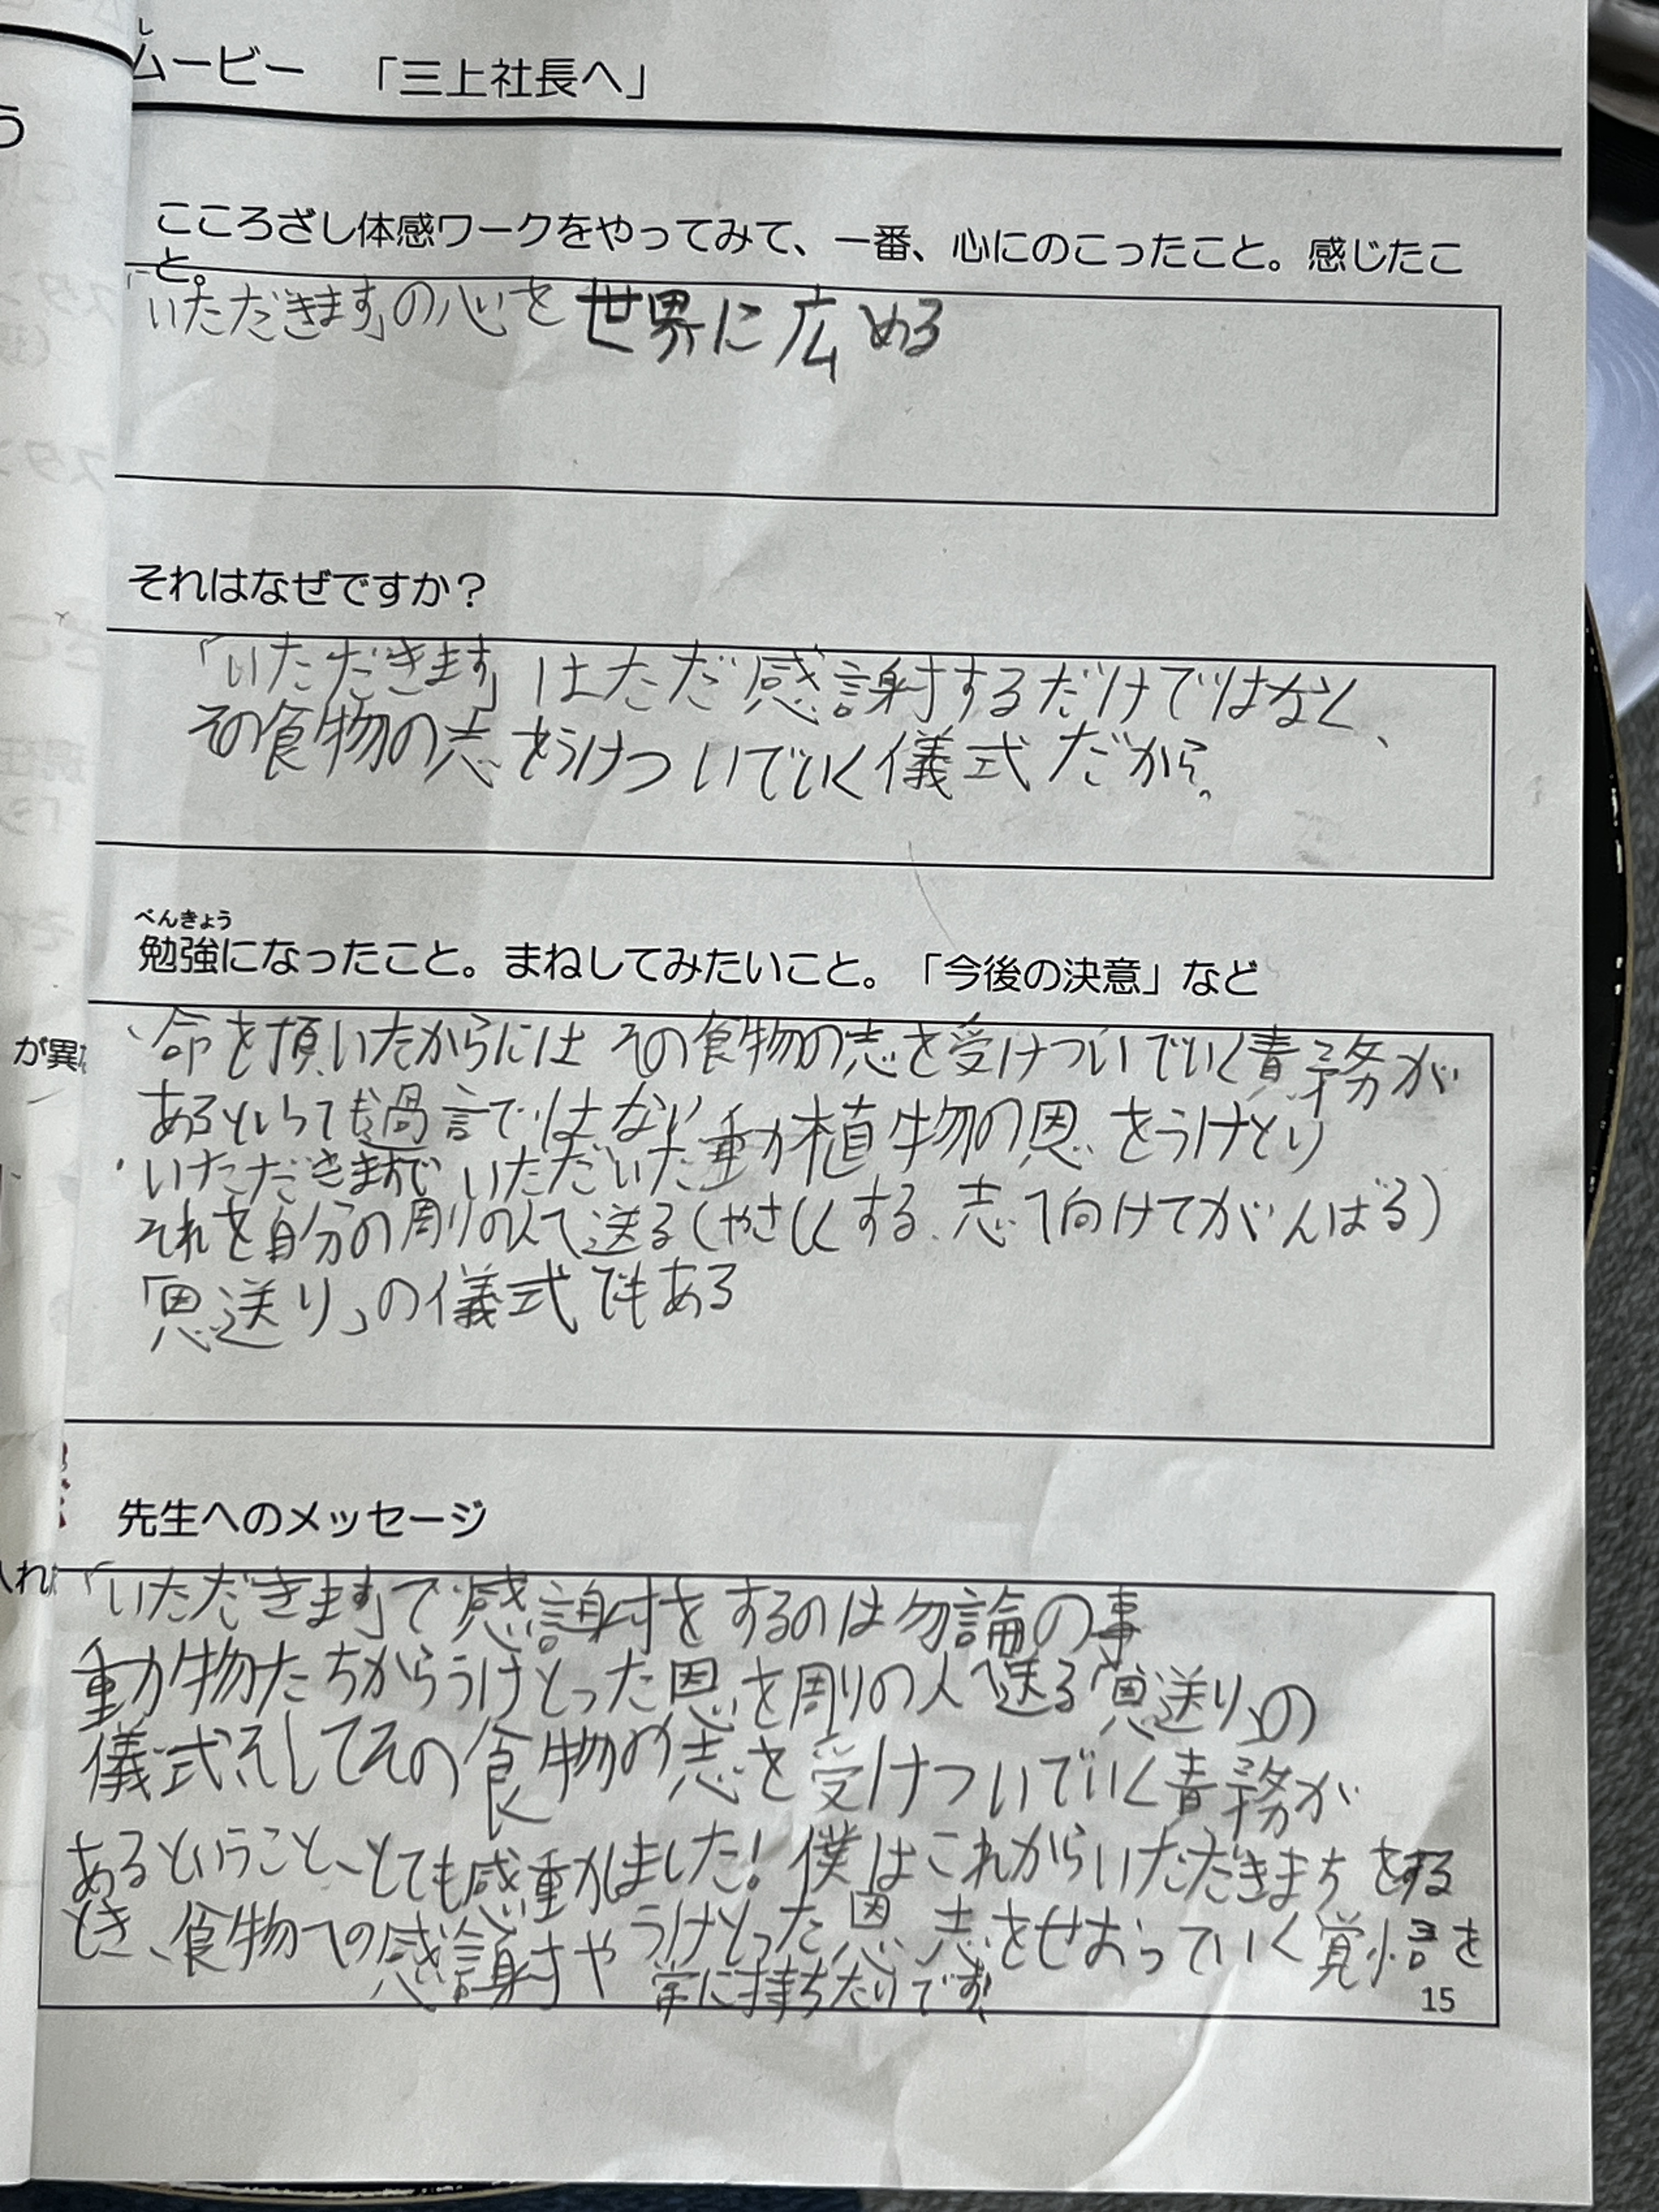 し
ムービー 「三上社長へ」
う
こころざし体感ワークをやってみて、一番、心にのこったこと。感じたこ
と。
「いただきます」の心を世界に広める
それはなぜですか？
「いただきます」はただ感謝するだけではなく、
その食物の志をうけついでいく儀式だから。
べんきょう
勉強になったこと。まねしてみたいこと。「今後の決意」など
・命を頂いたからには その食物の志を受けついでいく責務が
が異
あるといっても過言ではない
・いただきますでいただいた動植物の恩をうけとり
それを自分の周りの人へ送る(やさしくする、志へ向けてがんばる)
「恩送り」の儀式でもある
先生へのメッセージ
入れ
「いただきます」で感謝をするのは勿論の事
動物たちからうけとった恩を周りの人へ送る「恩送り」の
儀式そしてその食物の志を受けついでいく責務が
あるということ、とても感動しました！僕はこれからいただきますをする
とき、食物への感謝やうけとった恩、志をせおっていく覚悟を
常に持ちたいです！
15